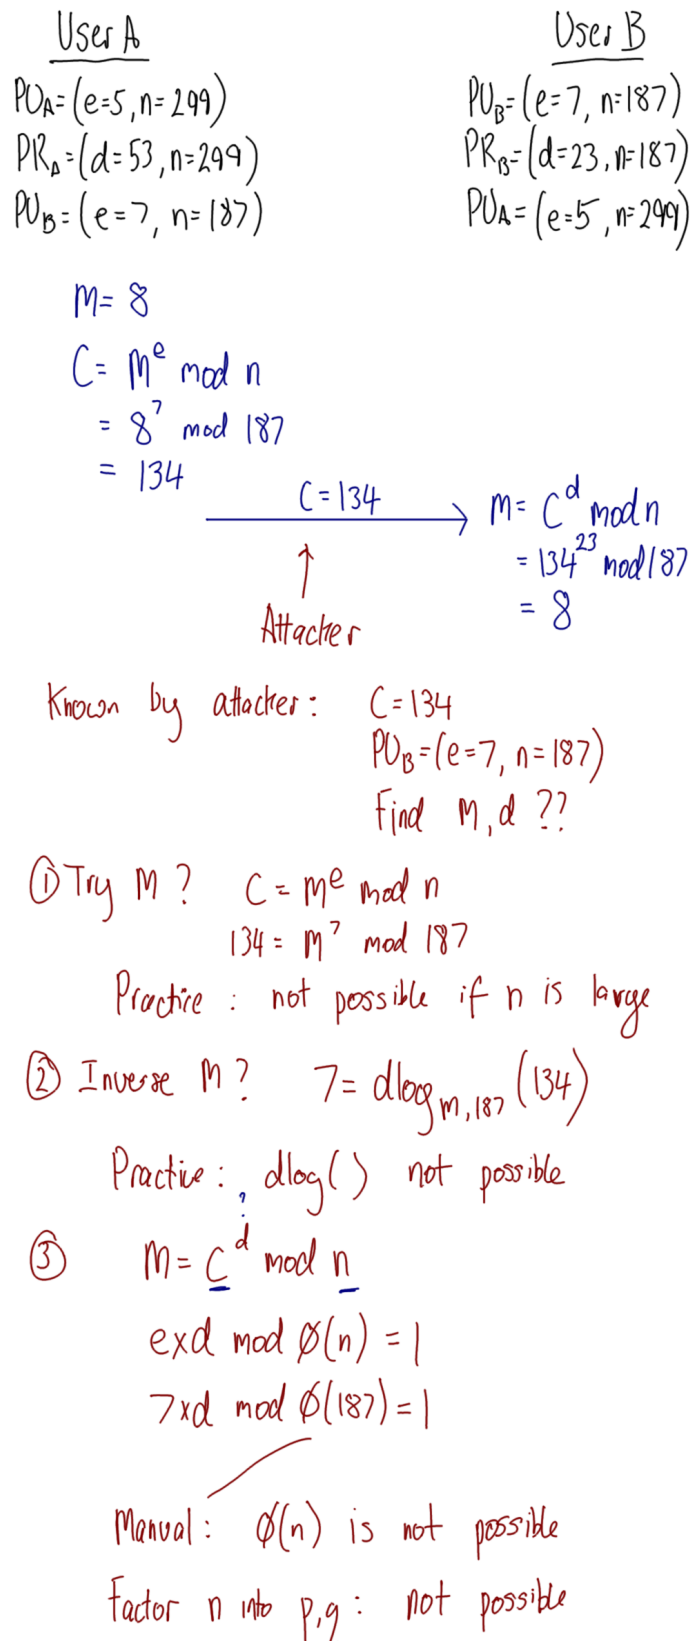 User A
User B
PU_A=(e=5, n=299)
PU_B=(e=7, n=187)
PR_A=(d=53, n=299)
PR_B=(d=23, n=187)
PU_B=(e=7, n=187)
PU_A=(e=5, n=299)
M= 8
C= M^e mod n
= 8^7 mod 187
= 134
C=134
M= C^d mod n
= 134^23 mod 187
= 8
Attacker
Known by attacker: C=134
PU_B=(e=7, n=187)
Find M, d ??
① Try M? C = M^e mod n
134 = M^7 mod 187
Practice : not possible if n is large
② Inverse M? 7= dlog_M,187 (134)
Practice : dlog() not possible
?
③ M= C^d mod n
exd mod ∅(n) = 1
7xd mod ∅(187) = 1
Manual : ∅(n) is not possible
Factor n into p,q : not possible